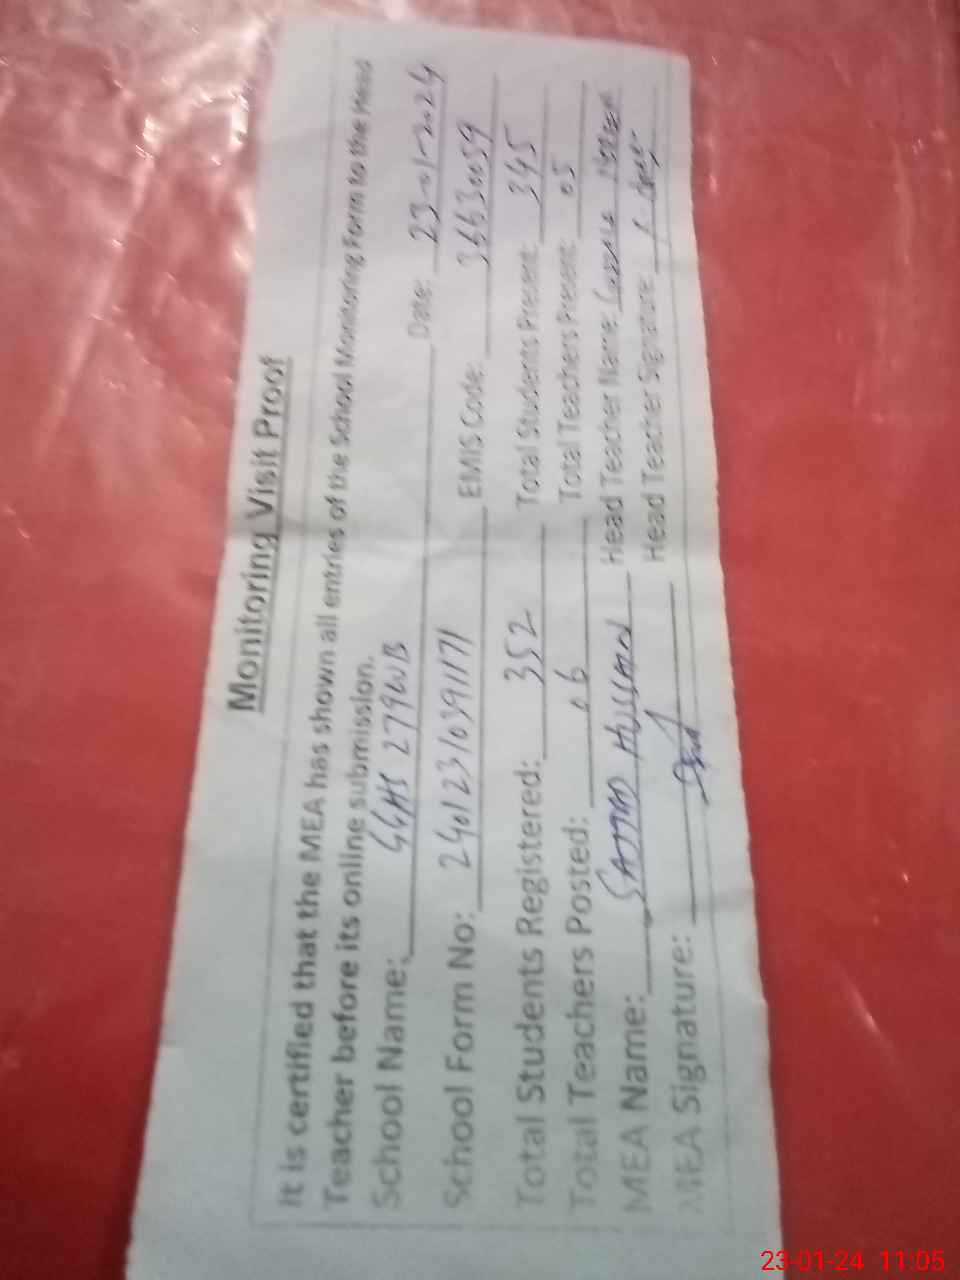 Monitoring Visit Proof
It is certified that the MEA has shown all entries of the School Monitoring Form to the Head
Teacher before its online submission.
School Name: GGHS 279WB Date: 23-01-2024
School Form No: 24012310391171 EMIS Code: 36630059
Total Students Registered: 352 Total Students Present: 345
Total Teachers Posted: 06 Total Teachers Present: 05
MEA Name: SAJJAD HUSSAIN Head Teacher Name:
MEA Signature: Head Teacher Signature:
23-01-24 11:05